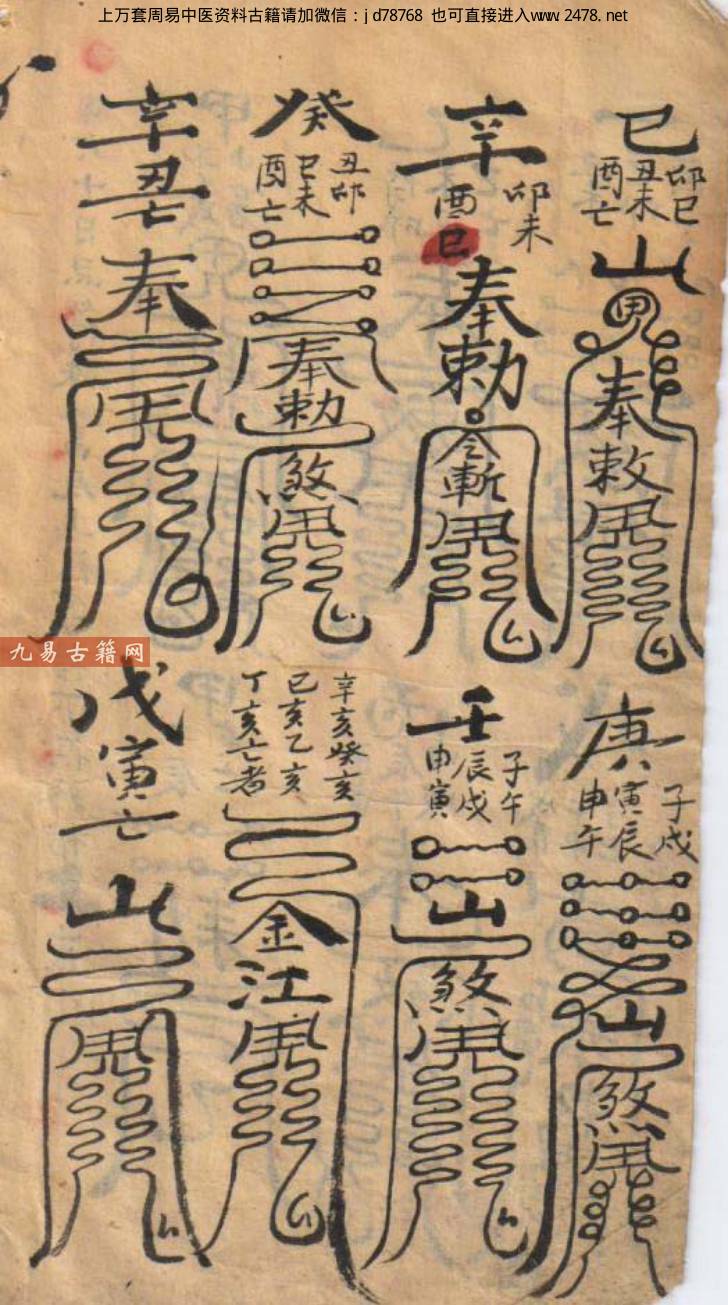 上万套周易中医资料古籍请加微信：jd78768 也可直接进入www.2478.net
已
卯巳
丑未
酉亡
山
奉敕
辛
卯未
酉巳
奉勅
令斬
癸
丑卯
巳未
酉亡
奉勅
煞
辛丑亡
奉
九易古籍网
庚
子戌
寅辰
申午
山
煞
壬
子午
辰戌
申寅
山
煞
辛亥癸亥
己亥乙亥
丁亥亡者
金江
戊寅亡
山